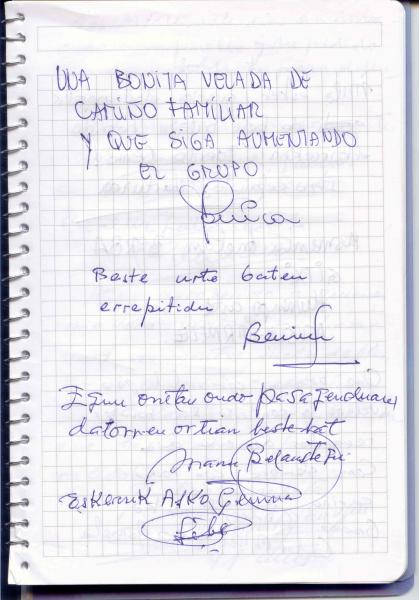 UNA BONITA VELADA DE
CARIÑO FAMILIAR
Y QUE SIGA AUMENTANDO
EL GRUPO
Beste urte baten
errepitidu
Egun onetan ondo pasa genduan
datorren urtian beste bat
Belaustegi
ESKERRIK ASKO Gemma